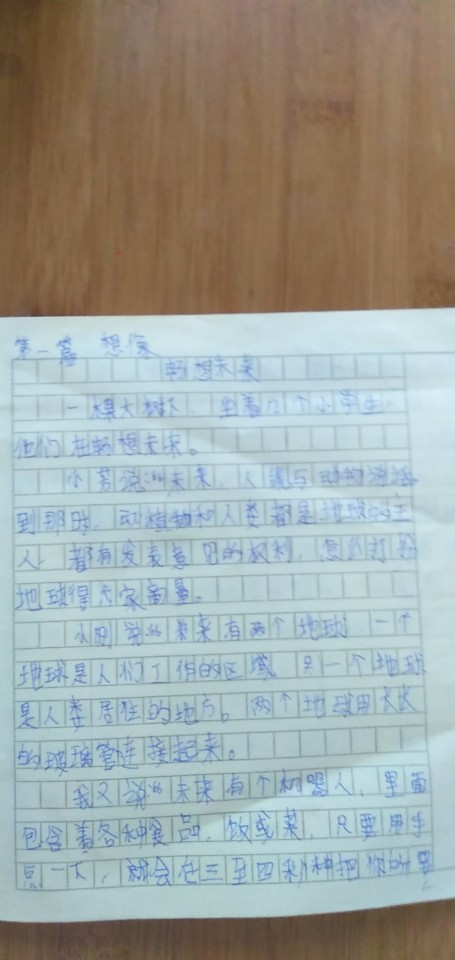 第一篇 想像
畅想未来
一棵大树下，坐着几个小学生，
他们在畅想未来。
小芳说："未来，人能与动物说话。
到那时，动植物和人类都是地球的主
人，都有发表意见的权利，怎么打扮
地球得大家商量。
小刚说："未来有两个地球，一个
地球是人们工作的区域，另一个地球
是人类居住的地方。两个地球用长长
的玻璃管连接起来。
我又说："未来有个机器人，里面
包含着各种食品，饭或菜，只要用手
点一下，就会在三至四秒种把你的